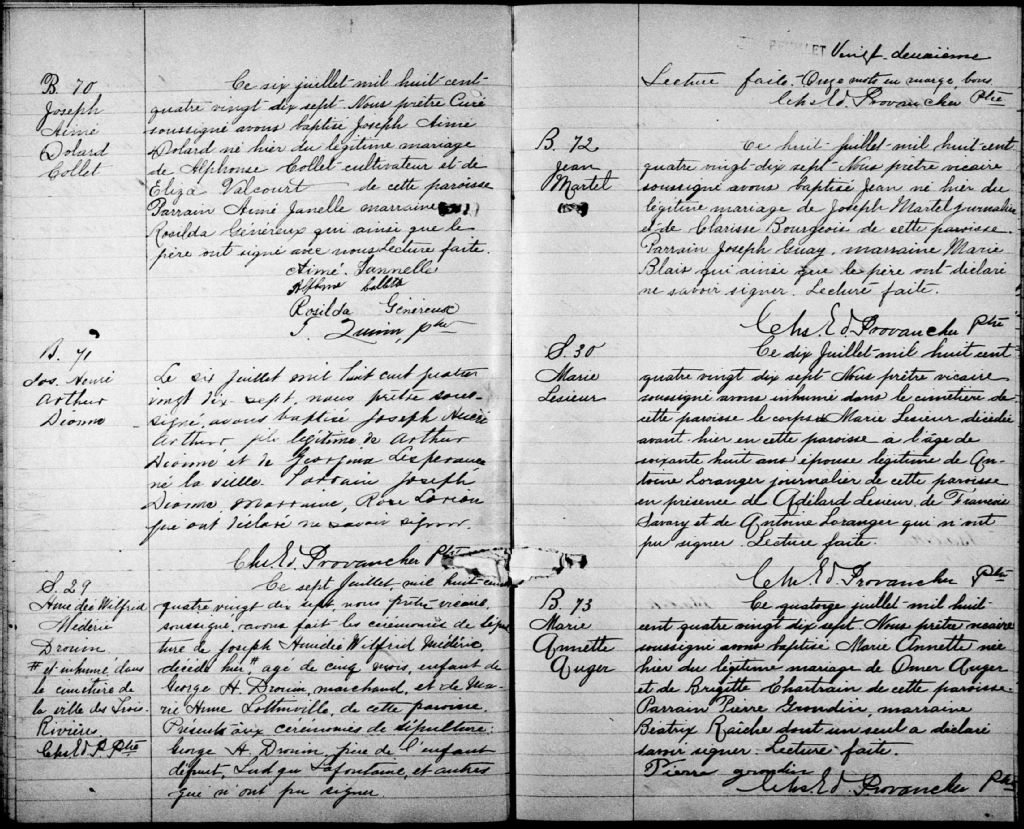 B. 70
Joseph
Aimé
Dolard
Collet
Ce six juillet mil huit cent
quatre vingt dix sept. Nous prêtre Curé
soussigné avons baptisé Joseph Aimé
Dolard né hier du légitime mariage
de Alphonse Collet cultivateur et de
Eliza Valcourt de cette paroisse
Parrain Aimé Janelle marraine
Rosilda Généreux qui ainsi que le
père ont signé avec nous Lecture faite.
Aimé Jannelle
Alphonse Collette
Rosilda Généreux
J. Quinn, ptre
B. 71
Jos. Henri
Arthur
Dionne
Le six juillet mil huit cent quatre
vingt dix sept, nous prêtre sous-
signé avons baptisé Joseph Henri
Arthur fils légitime de Arthur
Dionne et de Georgina Lesperance
né la veille. Parrain Joseph
Dionne, marraine, Rose
qui ont déclaré ne savoir signer.
Chs Ed. Provancher Ptre
S. 29
Amédée Wilfrid
Médéric
Drouin
# et inhumé dans
le cimetière de
la ville des Trois
Rivières.
Chs Ed P. Ptre
Ce sept juillet, mil huit cent
quatre vingt dix sept, nous prêtre vicaire,
soussigné, avons fait les cérémonies de sépul
ture de Joseph Amédée Wilfrid Médéric,
décédé hier # agé de cinq mois, enfant de
George H. Drouin, marchand, et de Ma-
rie Anne Lottinville, de cette paroisse.
Présents aux cérémonies de sépulture:
George H. Drouin, père de l'enfant
défunt, Ludger Lafontaine, et autres
qui n'ont pu signer.
FEUILLET Vingt-deuxième
Lecture faite. Onze mots en marge, bons.
Chs Ed. Provancher Ptre
B. 72
Jean
Martel
Ce huit juillet mil huit cent
quatre vingt dix sept Nous prêtre vicaire
soussigné avons baptisé Jean né hier du
légitime mariage de Joseph Martel journalier
et de Clarisse Bourgeois de cette paroisse.
Parrain Joseph Guay, marraine Marie
Blais qui ainsi que le père ont déclaré
ne savoir signer. Lecture faite.
Chs Ed. Provancher Ptre
S. 30
Marie
Lesieur
Ce dix juillet mil huit cent
quatre vingt dix sept Nous prêtre vicaire
soussigné avons inhumé dans le cimetière de
cette paroisse le corps de Marie Lesieur décédée
avant hier en cette paroisse à l'âge de
soixante huit ans épouse légitime de An-
toine Loranger journalier de cette paroisse
en présence de Adélard Lesieur, de François
Savary et de Antoine Loranger qui n'ont
pu signer. Lecture faite.
Chs Ed. Provancher Ptre
B. 73
Marie
Annette
Auger
Ce quatorze juillet mil huit
cent quatre vingt dix sept. Nous prêtre vicaire
soussigné avons baptisé Marie Annette née
hier du légitime mariage de Omer Auger
et de Brigitte Chartrain de cette paroisse.
Parrain Pierre Grondin, marraine
Béatrix Raiche dont un seul a déclaré
savoir signer. Lecture faite.
Pierre grondin
Chs. Ed. Provancher Ptre